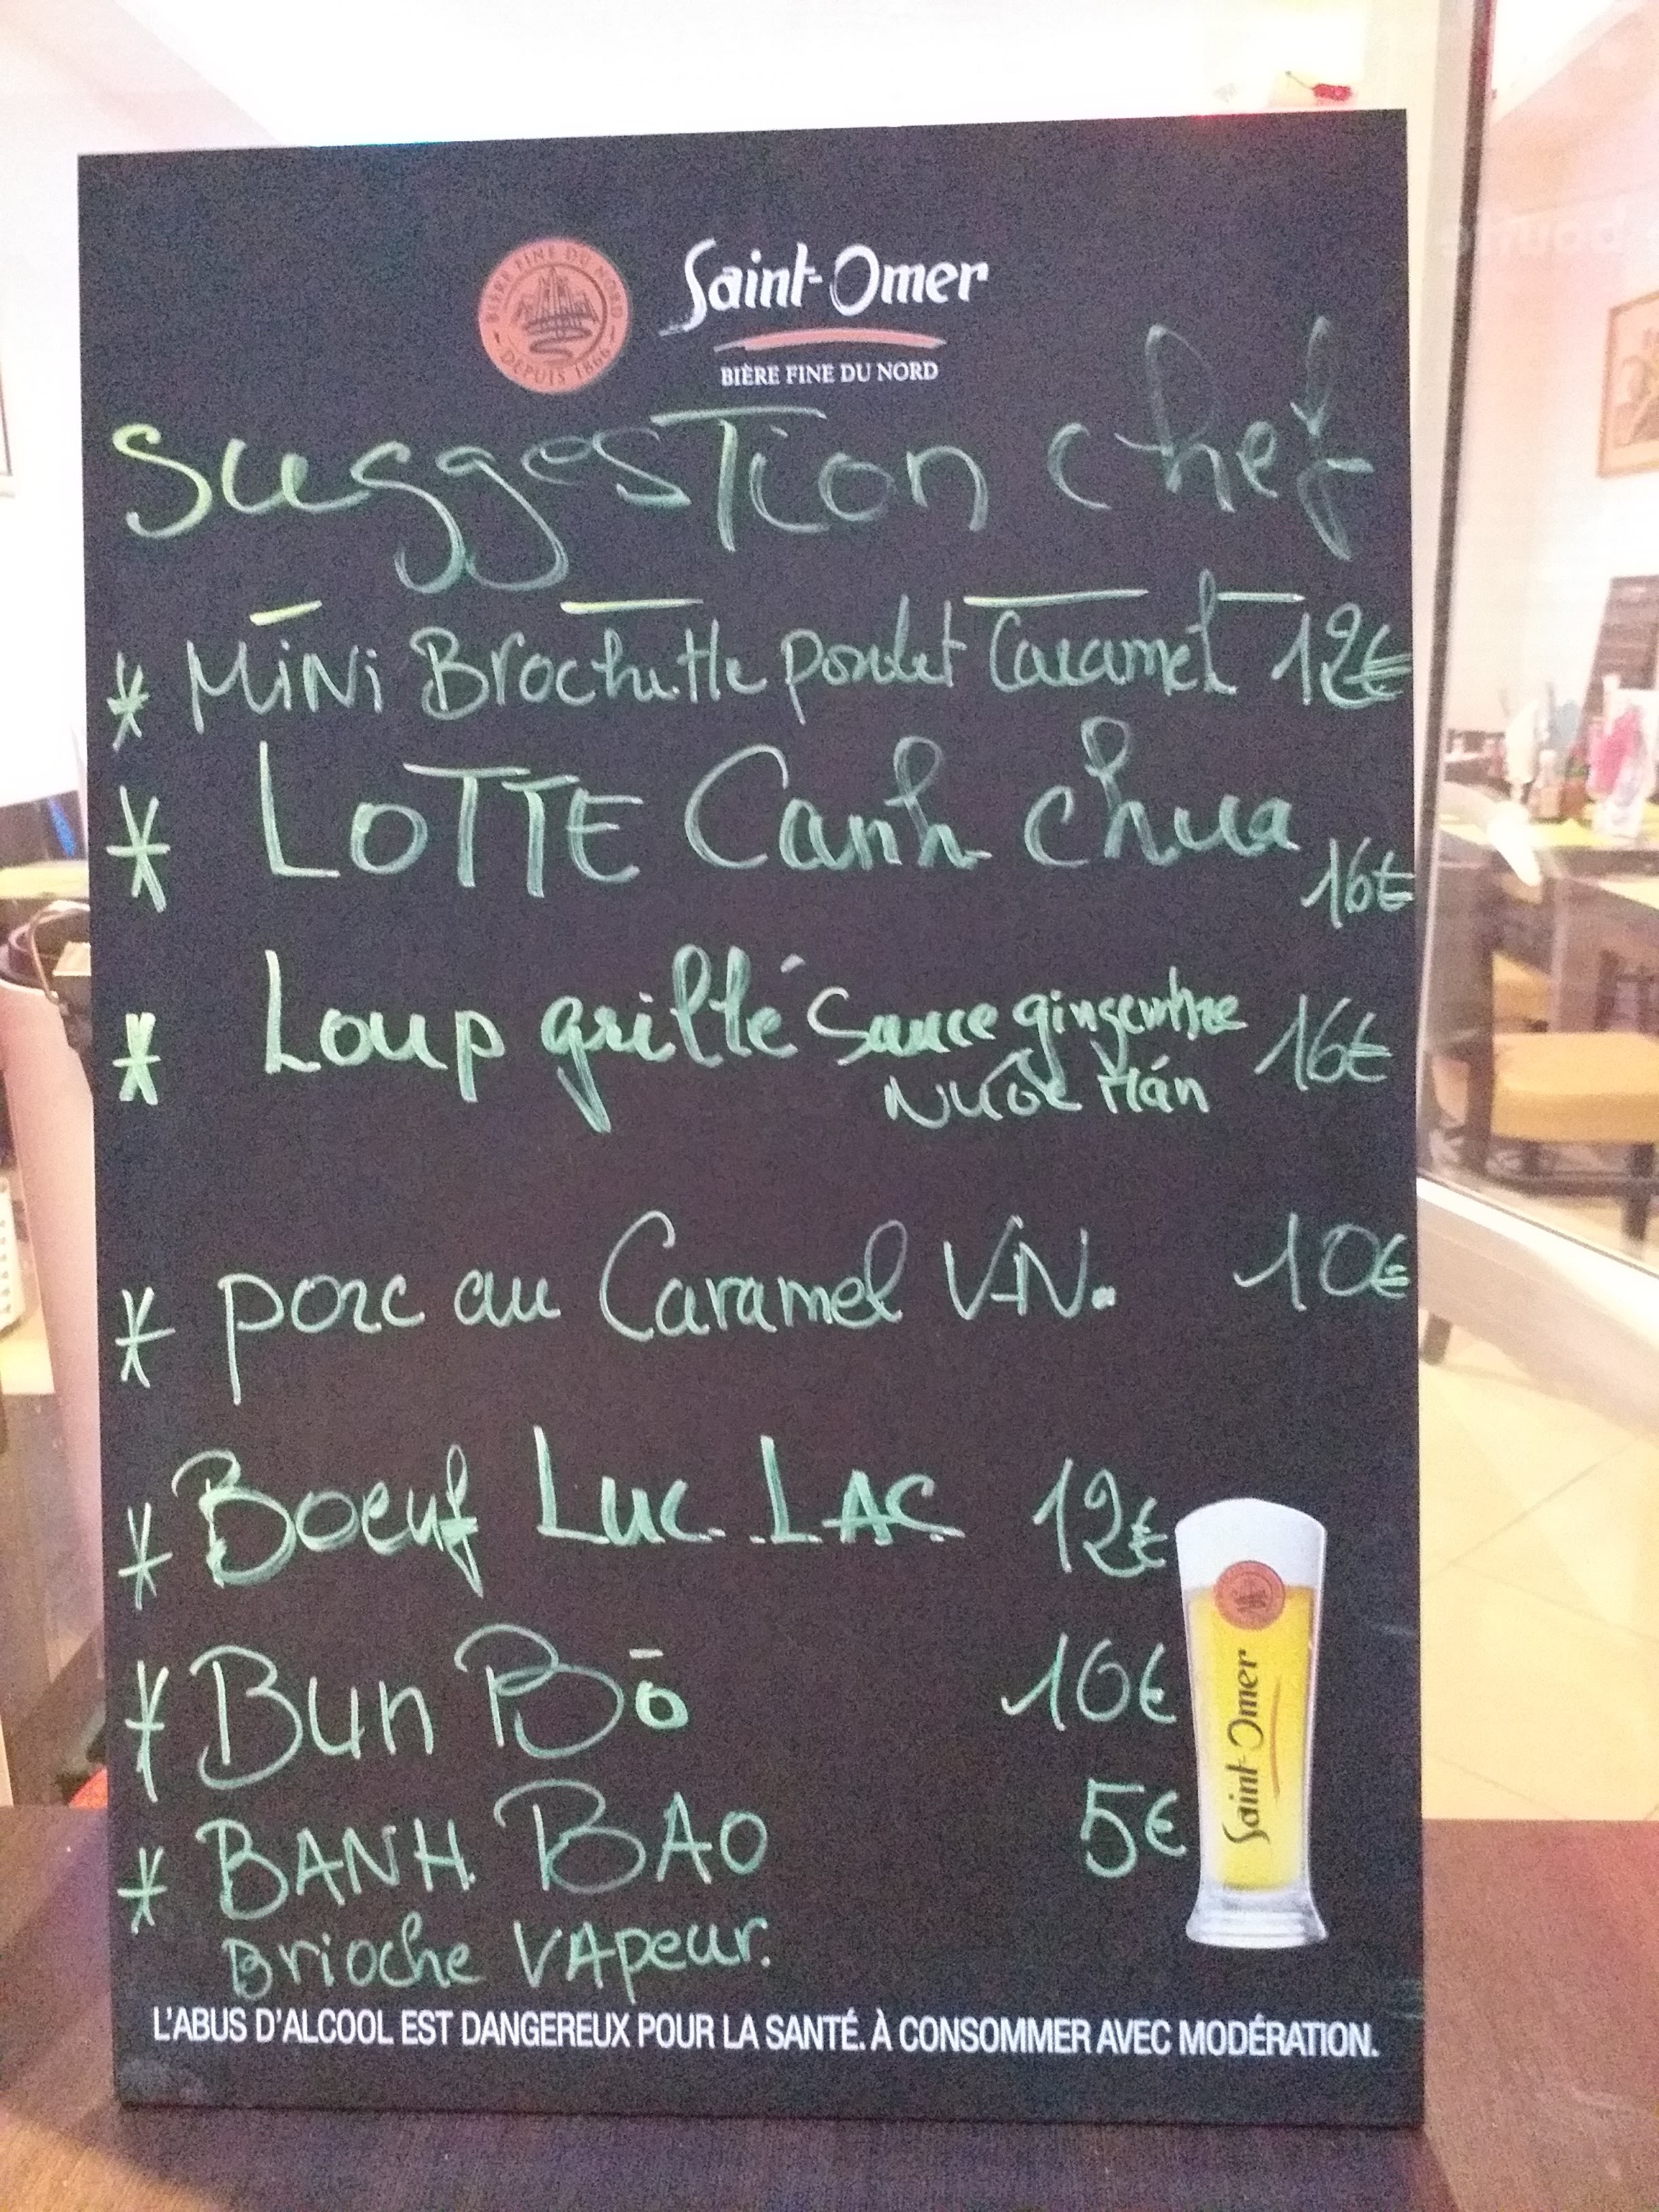 BIÈRE FINE DU NORD
DEPUIS 1866
Saint-Omer
BIÈRE FINE DU NORD
Suggestion chef
* MiNi Brochette poulet Caramel 12€
* LOTTE Canh chua 16€
* Loup grillé Sauce gingembre 16€
Nuoc Mán
* porc au Caramel V.N. 10€
* Boeuf Luc LAC 12€
* Bun Bō 10€
* BANH BAO 5€
Brioche VApeur.
Saint-Omer
L'ABUS D'ALCOOL EST DANGEREUX POUR LA SANTÉ. À CONSOMMER AVEC MODÉRATION.